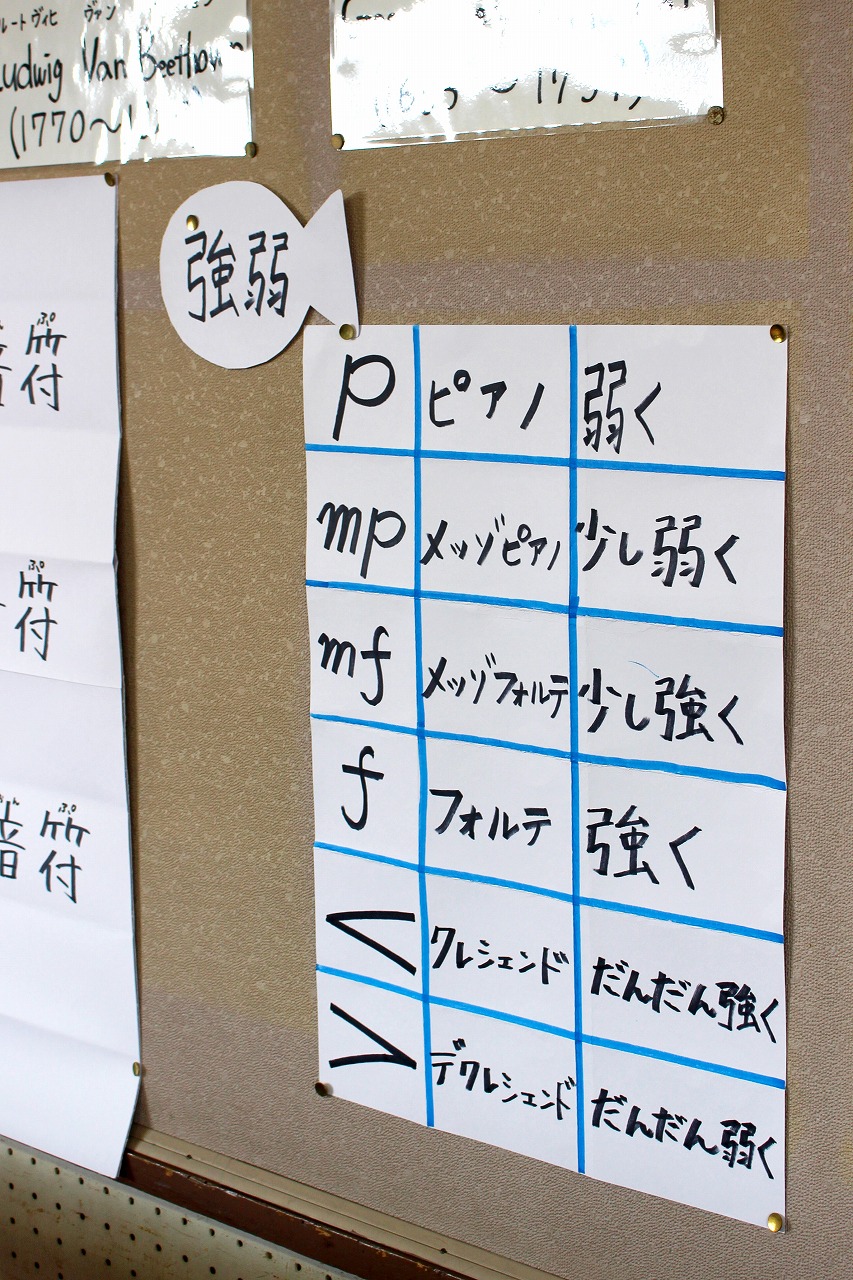 ヴァン
Ludwig Van Beethoven
(1770〜
強弱
p ピアノ 弱く
mp メッゾピアノ 少し弱く
mf メッゾフォルテ 少し強く
f フォルテ 強く
< クレシェンド だんだん強く
> デクレシェンド だんだん弱く
ぷ
符
ぷ
符
ぷ
音符